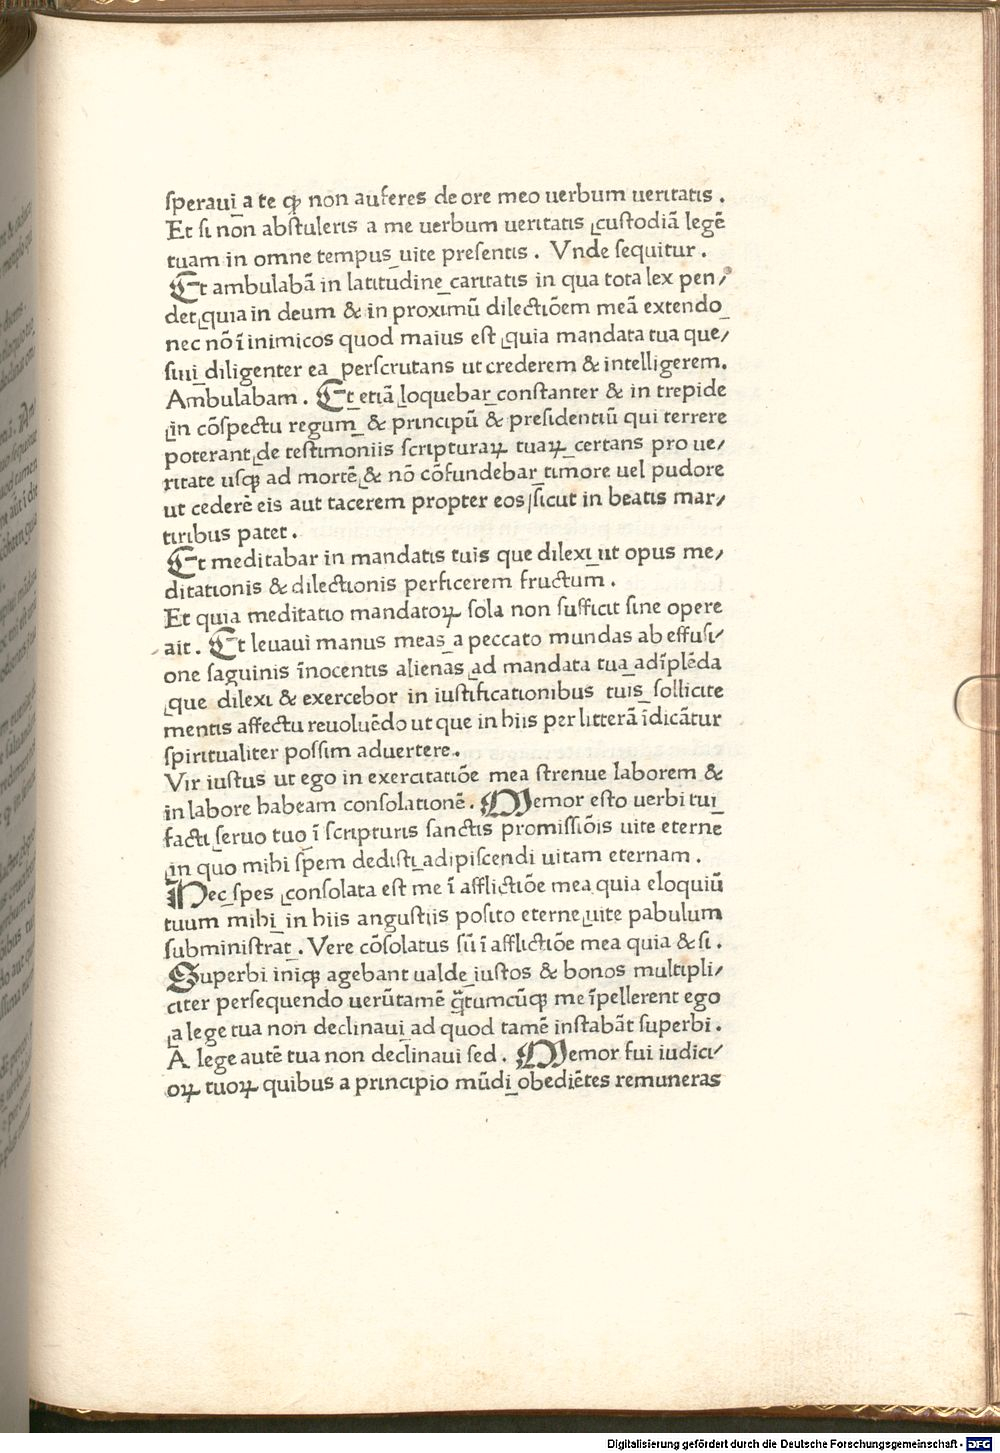 speraui a te ꝙ non auferes de ore meo uerbum ueritatis .
Et si non abstuleris a me uerbum ueritatis custodiã legẽ
tuam in omne tempus uite presentis . Vnde sequitur .
Et ambulabã in latitudine caritatis in qua tota lex pen/
det quia in deum & in proximũ dilectiõem meã extendo
nec nõ ĩ inimicos quod maius est quia mandata tua que/
siui diligenter ea perscrutans ut crederem & intelligerem.
Ambulabam . Et etiã loquebar constanter & in trepide
in cõspectu regum & principũ & presidentiũ qui terrere
poterant de testimoniis scripturaꝝ tuaꝝ certans pro ue/
ritate usqꝫ ad mortẽ & nõ cõfundebar timore uel pudore
ut cederẽ eis aut tacerem propter eos sicut in beatis mar/
tiribus patet .
Et meditabar in mandatis tuis que dilexi ut opus me/
ditationis & dilectionis perficerem fructum .
Et quia meditatio mandatoꝝ sola non sufficit sine opere
ait . Et leuaui manus meas a peccato mundas ab effusi/
one saguinis ĩnocentis alienas ad mandata tua adĩplẽda
que dilexi & exercebor in iustificationibus tuis sollicite
mentis affectu reuoluẽdo ut que in hiis per litterã ĩdicãtur
spiritualiter possim aduertere .
Vir iustus ut ego in exercitatiõe mea strenue laborem &
in labore habeam consolationẽ . Memor esto uerbi tui
facti seruo tuo ĩ scripturis sanctis promissiõis uite eterne
in quo mihi spem dedisti adipiscendi uitam eternam .
Hec spes consolata est me ĩ afflictiõe mea quia eloquiũ
tuum mihi in hiis angustiis posito eterne uite pabulum
subministrat . Vere cõsolatus sũ ĩ afflictiõe mea quia & si .
Superbi iniqꝫ agebant ualde iustos & bonos multipli/
citer persequendo uerũtamẽ q̃tumcũqꝫ me ĩpellerent ego
a lege tua non declinaui ad quod tamẽ instabãt superbi .
A lege autẽ tua non declinaui sed . Memor fui iudici/
oꝝ tuoꝝ quibus a principio mũdi obediẽtes remuneras
Digitalisierung gefördert durch die Deutsche Forschungsgemeinschaft - DFG